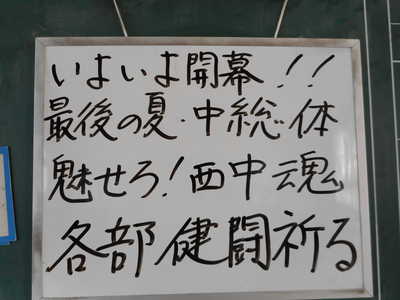 いよいよ開幕!!
最後の夏・中総体
魅せろ!西中魂
各部健闘祈る